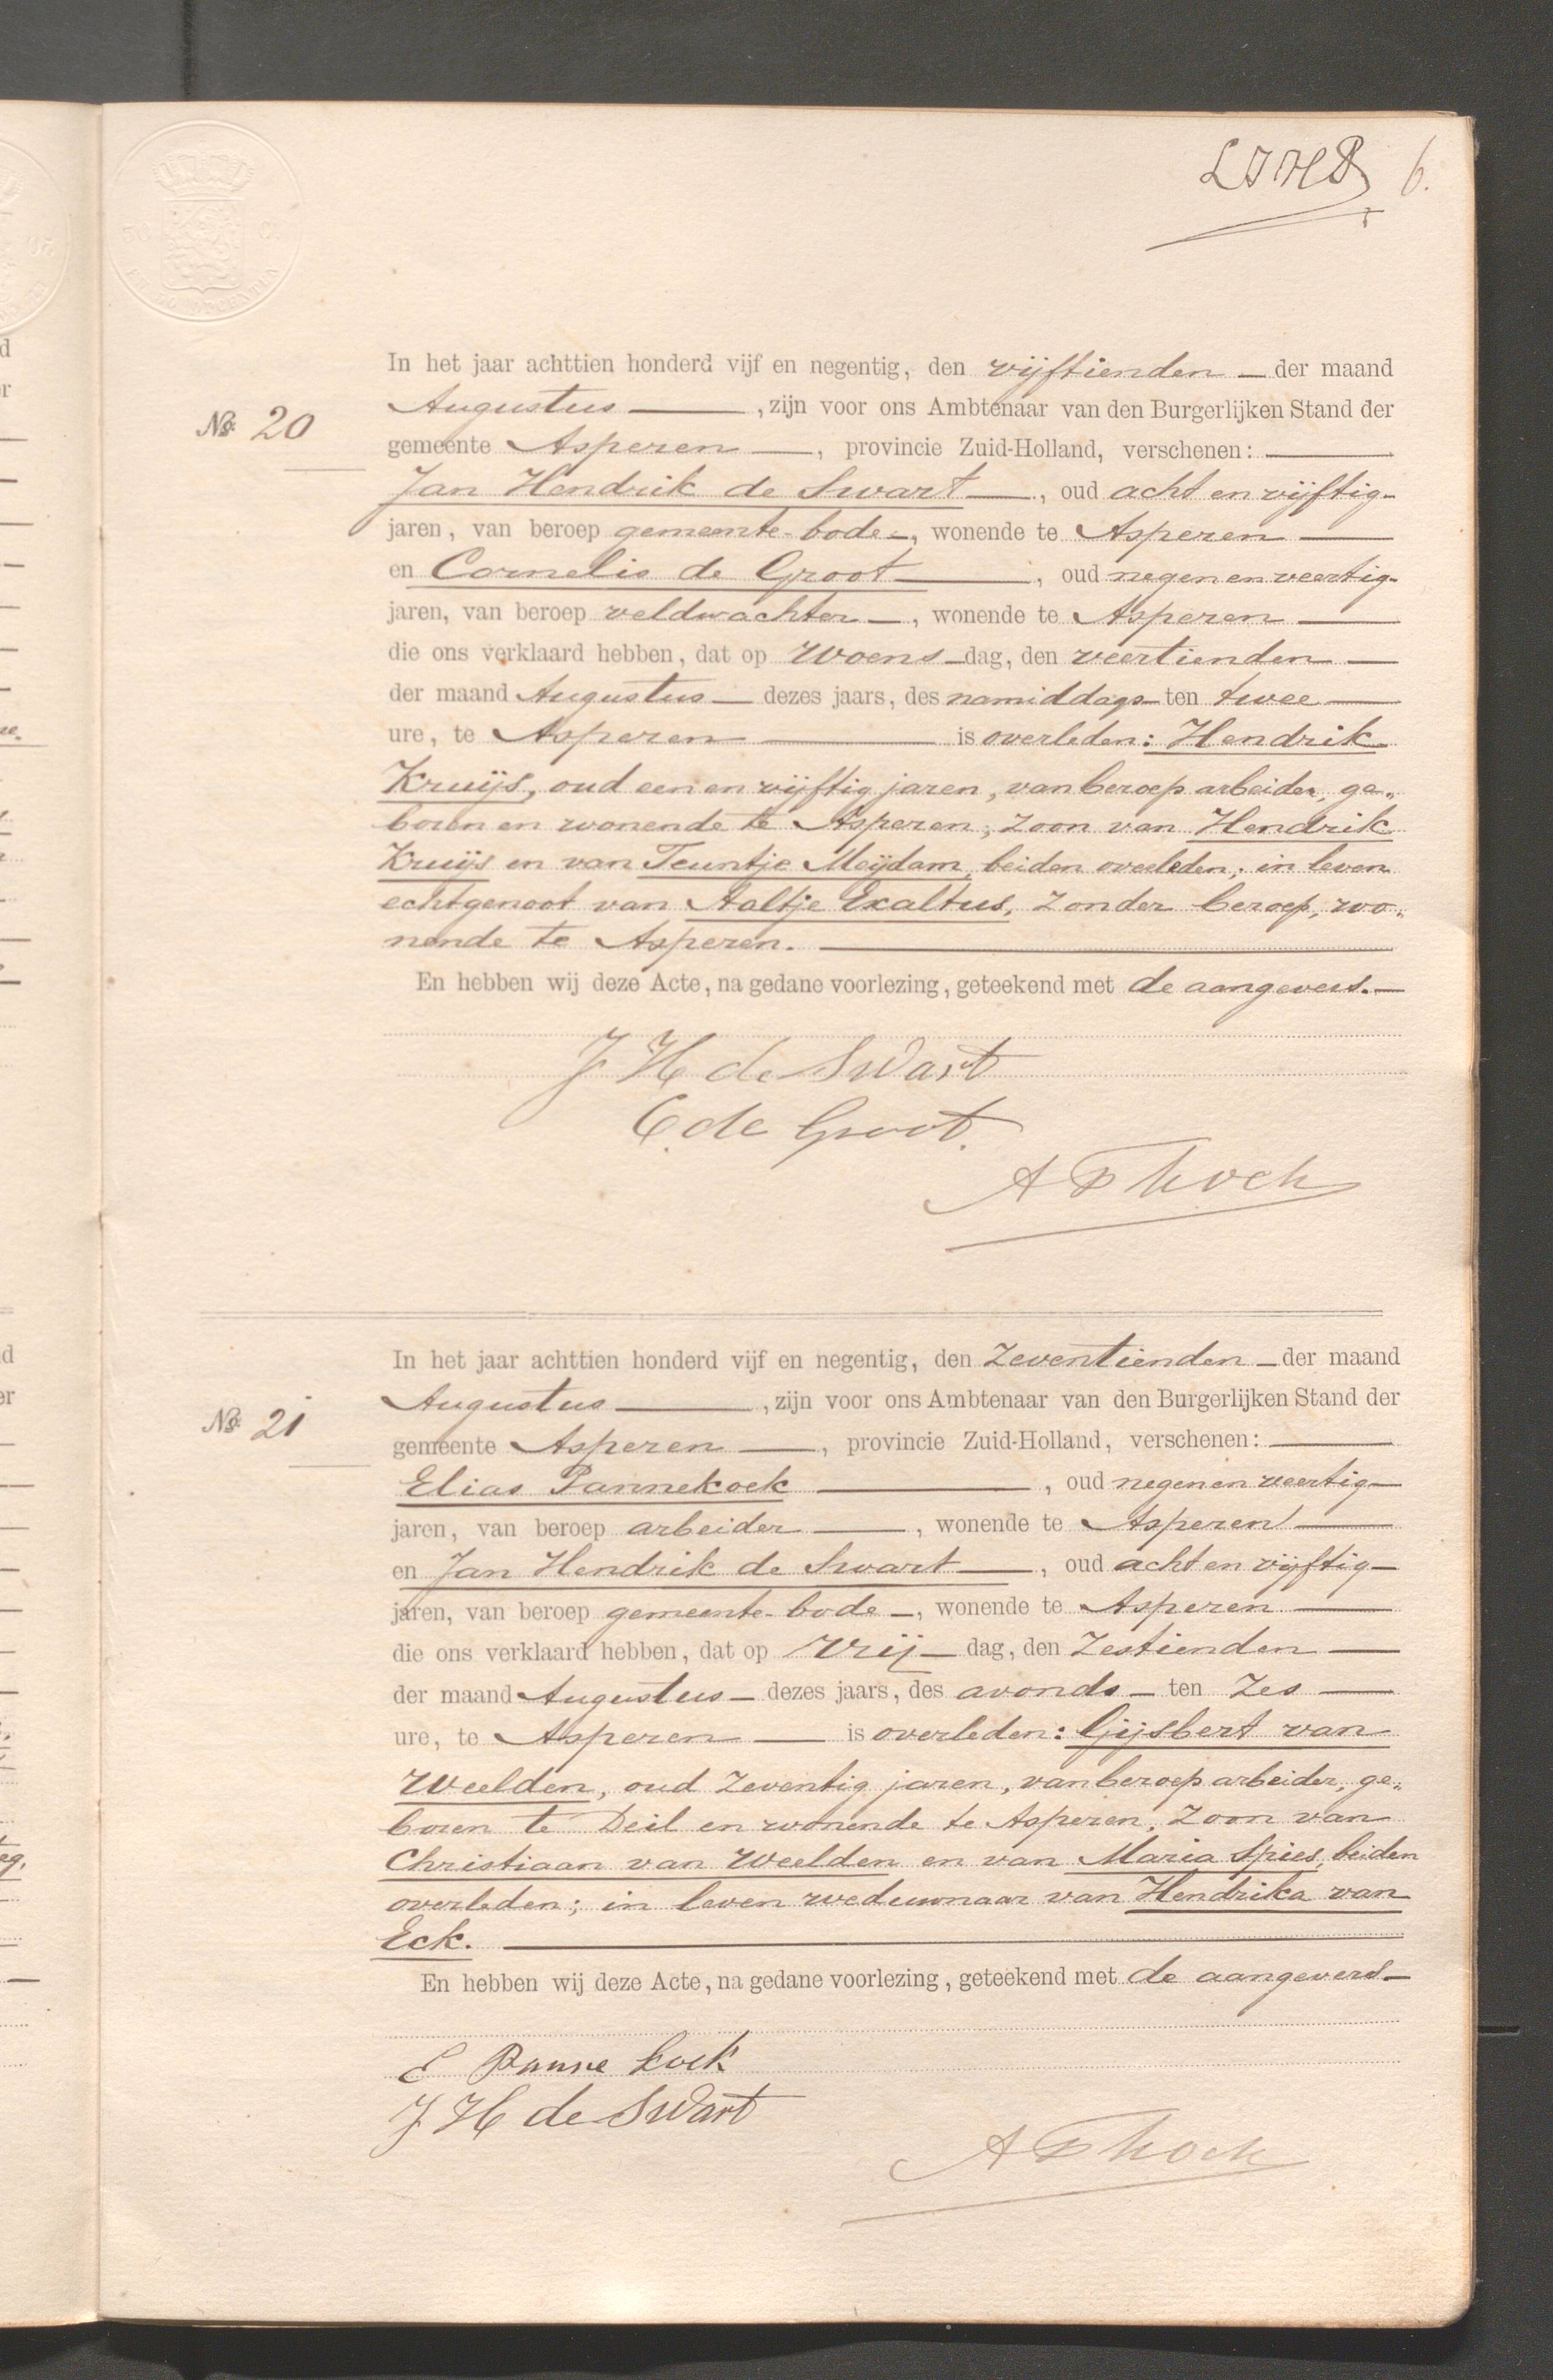 6.
In het jaar achttien honderd vijf en negentig, den vijftienden — der maand
Augustus —, zijn voor ons Ambtenaar van den Burgerlijken Stand der
No. 20
gemeente Asperen —, provincie Zuid-Holland, verschenen: —
Jan Hendrik de Swart —, oud acht en vijftig-
jaren, van beroep gemeente-bode —, wonende te Asperen —
en Cornelis de Groot —, oud negen en veertig-
jaren, van beroep veldwachter —, wonende te Asperen —
die ons verklaard hebben, dat op Woens-dag, den veertienden —
der maand Augustus — dezes jaars, des namiddags ten twee —
ure, te Asperen — is overleden: Hendrik
Kruijs, oud een en vijftig jaren, van beroep arbeider, ge„
boren en wonende te Asperen; zoon van Hendrik
Kruijs en van Teuntje Meijdam, beiden overleden; in leven
echtgenoot van Aaltje Exaltus, zonder beroep, wo„
nende te Asperen. —
En hebben wij deze Acte, na gedane voorlezing, geteekend met de aangevers. —
J H de Swart
C. de Groot.
In het jaar achttien honderd vijf en negentig, den zeventienden — der maand
Augustus —, zijn voor ons Ambtenaar van den Burgerlijken Stand der
No. 21
gemeente Asperen —, provincie Zuid-Holland, verschenen: —
Elias Pannekoek —, oud negen en veertig —
jaren, van beroep arbeider —, wonende te Asperen —
en Jan Hendrik de Swart —, oud acht en vijftig —
jaren, van beroep gemeente-bode —, wonende te Asperen —
die ons verklaard hebben, dat op Vrij — dag, den zestienden —
der maand Augustus — dezes jaars, des avonds — ten zes —
ure, te Asperen — is overleden: Gijsbert van
Weelden, oud zeventig jaren, van beroep arbeider, ge„
boren te Deil en wonende te Asperen, zoon van
Christiaan van Weelden en van Maria Spies, beiden
overleden; in leven weduwnaar van Hendrika van
Eck. —
En hebben wij deze Acte, na gedane voorlezing, geteekend met de aangevers —
E Pannekoek
J H de Swart